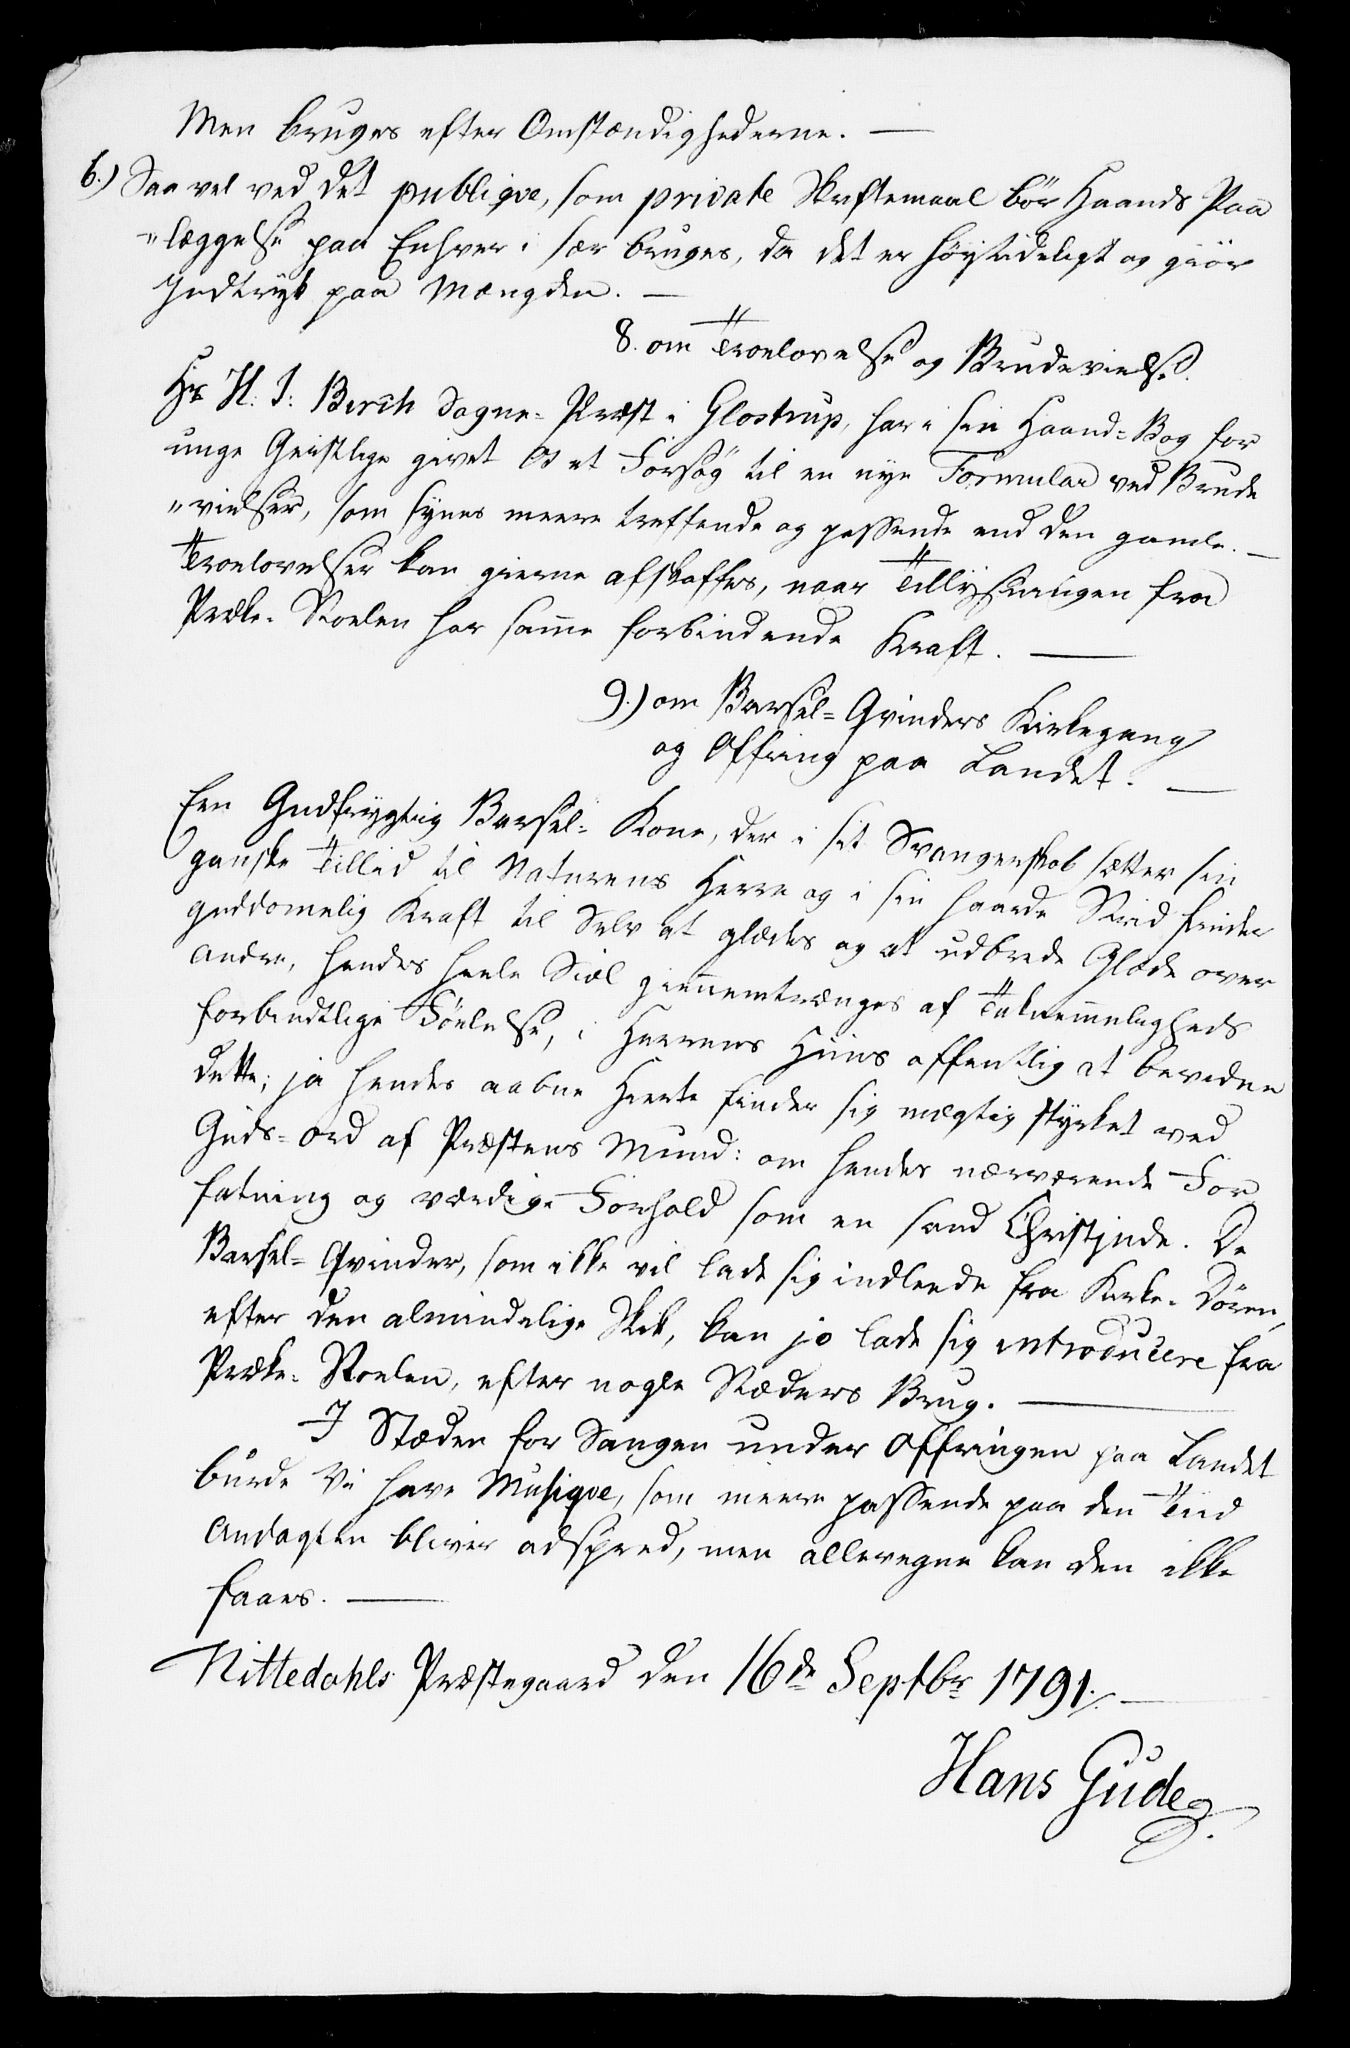 Men bruges efter Omstændighederne. —
6.) Saa vel ved det publiqve, som private Skriftemaal bör Haands Paa
"læggelse paa Enhver i sær bruges, da det er høytideligt og giör
Indtryk paa Mængden. —
8. om Troelovelse og Brudevielse.
Hr H: I: Birch Sogne-Præst i Glostrup, har i sin Haand-Bog for
unge Geistlige givet Os et Forsøg til en nye Formular ved Brude
"vielser, som synes meere treffende og passende end den gamle. —
Troelovelser kan gierne afskaffes, naar Tillysningen fra
Præke-Stoelen har samme forbindende Kraft. —
9.) om Barsel-Qvinders Kirkegang
og Offring paa Landet. —
Een Gudfrygtig Barsel-Kone, der i sit Svangerskab sætter sin
ganske Tillid til Naturens Herre og i sin haarde Strid finder
guddomelig Kraft til Selv at glædes og at udbrede Glæde over
andre, hendes heele Siæl giennemtrænges af Taknemmeligheds
forbindtlige Föelelse, i Herrens Huus offentlig at bevidne
dette; ja hendes aabne Hierte finder sig mægtig styrket ved
Guds-Ord af Præstens Mund: om hendes nærværende For
fatning og værdige Forhold som en sand Christjnde. De
Barsel-Qvinder, som ikke vil lade sig indleede fra Kirke-Dören,
efter den almindelige Skik, kan jo lade sig introducere fra
Præke-Stoelen, efter nogle Stæders Brug. —
I Stæden for Sangen under Offringen paa Landet
burde Vi have Musiqve, som meere passende paa den Tiid
Andagten bliver adspred, men allevegne kan den ikke
faaes. —
Nittedahls Præstegaard den 16de Septbr 1791. —
Hans Gude